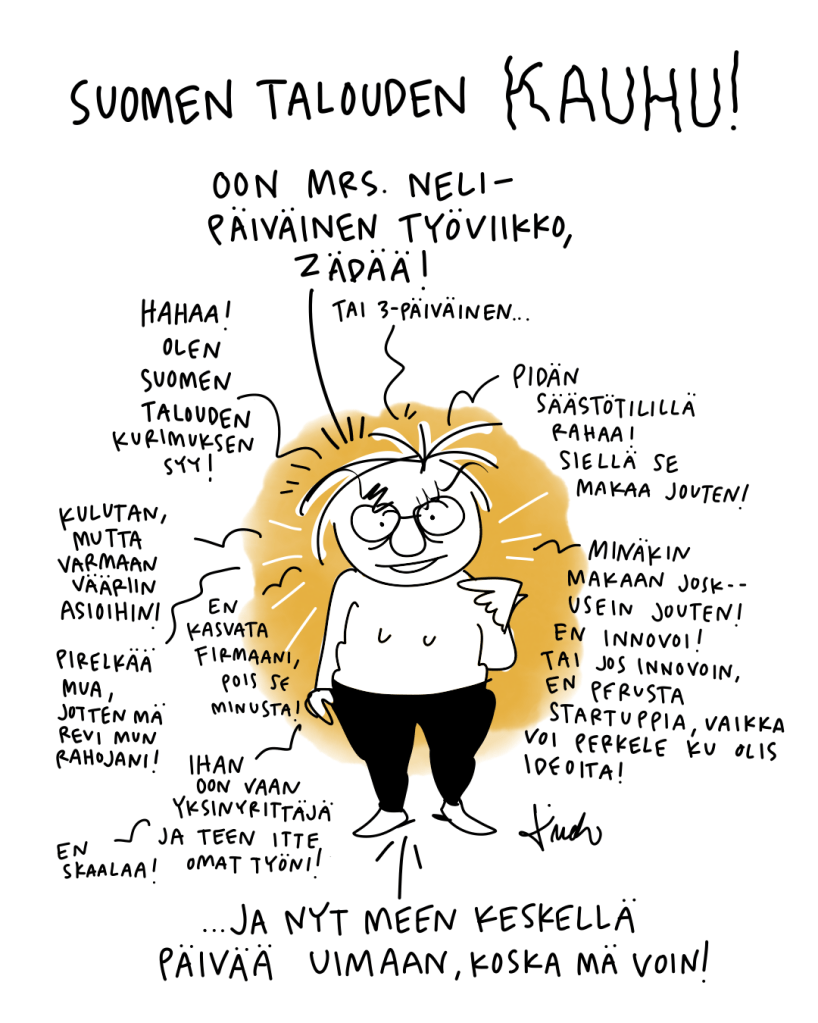 SUOMEN TALOUDEN KAUHU!
OON MRS. NELI-
PÄIVÄINEN TYÖVIIKKO,
ZÄDÄÄ!
TAI 3-PÄIVÄINEN...
HAHAA!
OLEN
SUOMEN
TALOUDEN
KURIMUKSEN
SYY!
PIDÄN
SÄÄSTÖTILILLÄ
RAHAA!
SIELLÄ SE
MAKAA JOUTEN!
KULUTAN,
MUTTA
VARMAAN
VÄÄRIIN
ASIOIHIN!
MINÄKIN
MAKAAN JOSK--
USEIN JOUTEN!
EN INNOVOI!
TAI JOS INNOVOIN,
EN PERUSTA
STARTUPPIA, VAIKKA
VOI PERKELE KU OLIS
IDEOITA!
EN
KASVATA
FIRMAANI,
POIS SE
MINUSTA!
PIRELKÄÄ
MUA,
JOTTEN MÄ
REVI MUN
RAHOJANI!
IHAN
OON VAAN
YKSINYRITTÄJÄ
JA TEEN ITTE
OMAT TYÖNI!
EN
SKAALAA!
...JA NYT MEEN KESKELLÄ
PÄIVÄÄ UIMAAN, KOSKA MÄ VOIN!